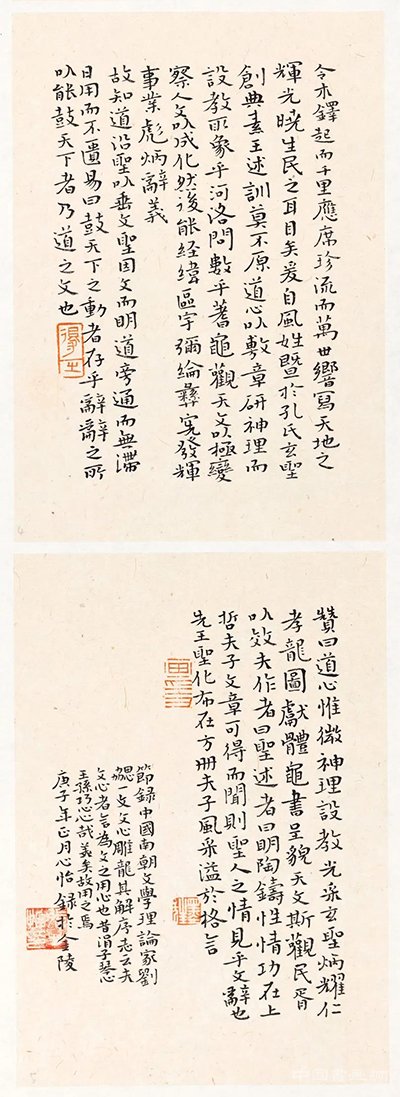 令木鐸起而千里應席珍流而萬世響寫天地之
輝光曉生民之耳目矣爰自風姓暨於孔氏玄聖
創典素王述訓莫不原道心以敷章研神理而
設教取象乎河洛問數乎蓍龜觀天文以極變
察人文以成化然後能經緯區宇彌綸彝憲發輝
事業彪炳辭義
故知道沿聖以垂文聖因文而明道旁通而無滯
日用而不匱易曰鼓天下之動者存乎辭辭之所
以能鼓天下者乃道之文也
贊曰道心惟微神理設教光采玄聖炳耀仁
孝龍圖獻體龜書呈貌天文斯觀民胥
以效夫作者曰聖述者曰明陶鑄性情功在上
哲夫子文章可得而聞則聖人之情見乎文辭也
先王聖化布在方冊夫子風采溢於格言
節錄中國南朝文學理論家劉
勰一文文心雕龍其解序志云夫
文心者言為文之用心也昔涓子琴心
王孫巧心心哉美矣故用之焉
庚子年正月心怡錄於金陵